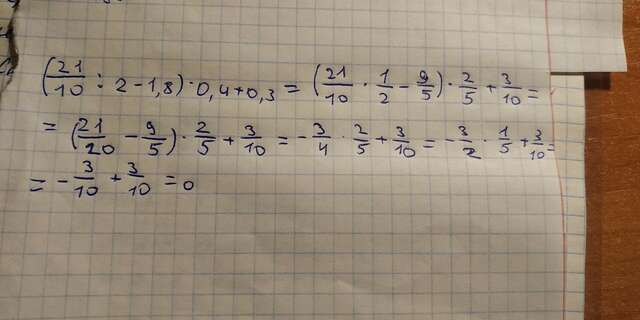 (21/10 : 2 - 1,8) · 0,4 + 0,3 = (21/10 · 1/2 - 9/5) · 2/5 + 3/10 =
= (21/20 - 9/5) · 2/5 + 3/10 = - 3/4 · 2/5 + 3/10 = - 3/2 · 1/5 + 3/10 =
= - 3/10 + 3/10 = 0